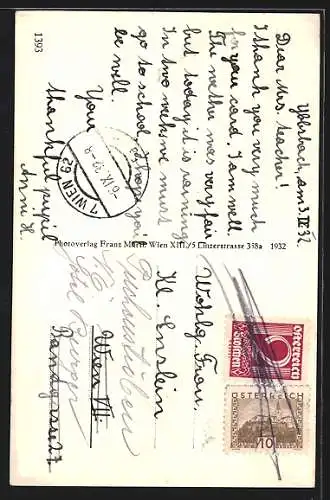 1393
Ybbsbach, am 3.IX.32.
Dear Mrs. teacher!
I thank you very much
for your card. I am well
The wether was very fair
but today it is raining
In two weeks we must
go to school, I hope you
be well.
Your
thankful pupil
Anni H.
1 WIEN 62
-6.IX.32-8
Photoverlag Franz Wien XIII/5 Linzerstrasse 358a 1932
Wohlg. Frau
Kl. Enslein
Wien VII
Bandgasse 27
österreich
ÖSTERREICH
10